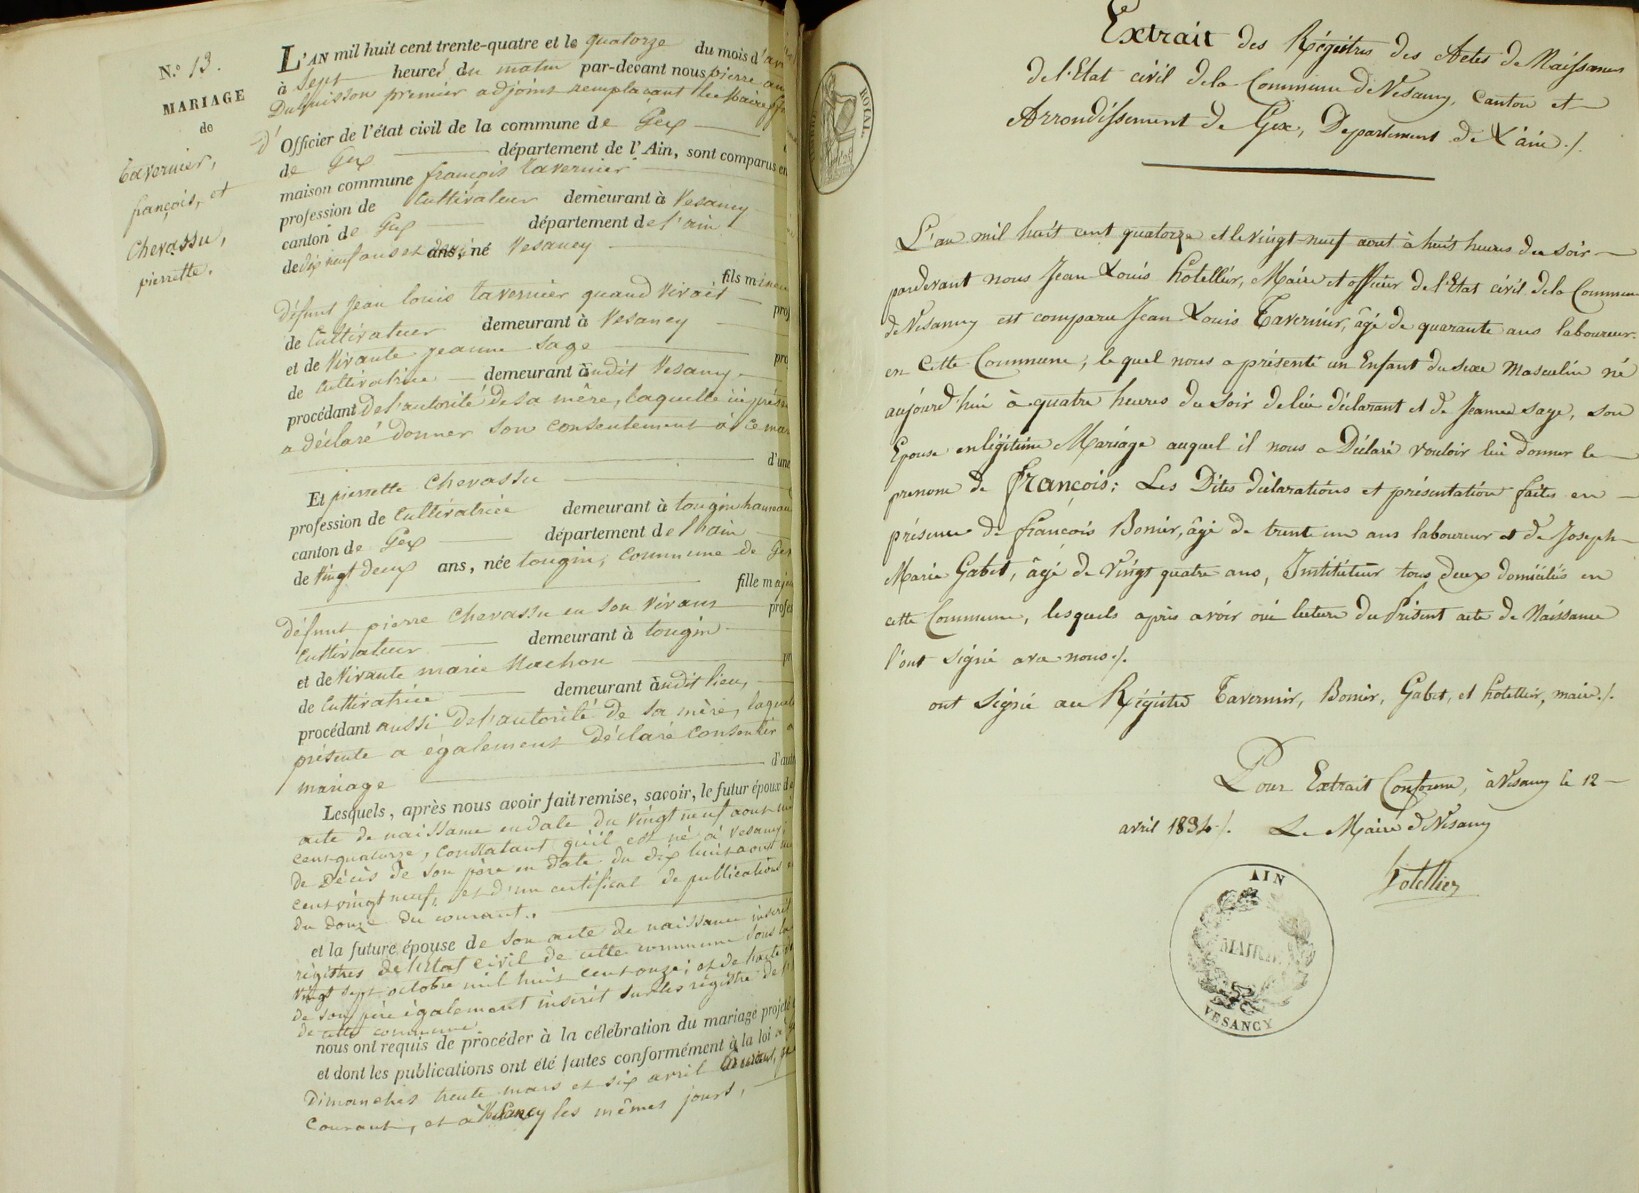 N.º 13.
MARIAGE
de
Tavernier,
françois, et
Chevassu,
pierrette.
L'AN mil huit cent trente-quatre et le quatorze du mois d'
à sept heures du matin par-devant nous pierre
Duquisson premier adjoint remplaçant le Maire
d' Officier de l'état civil de la commune de Gex
de Gex département de l'Ain, sont comparus en
maison commune françois tavernier
profession de Cultivateur demeurant à Vesancy
canton de Gex département de l'ain
de dix neuf ans et demi ans, né Vesancy
fils mineur
défunt Jean louis tavernier quand vivait
de Cultivateur demeurant à Vesancy
et de Vivante jeanne Sage
de Cultivatrice demeurant audit Vesancy
procédant de l'autorité de sa mère, laquelle ici présente
a déclaré donner son consentement à ce
d'une
Et pierrette Chevassu
profession de Cultivatrice demeurant à tougin hameau
canton de Gex département de l'ain
de Vingt deux ans, née tougin, commune de Gex
fille maj
défunt pierre Chevassu en son vivant
Cultivateur demeurant à tougin
et de Vivante marie Machon
de Cultivatrice demeurant audit lieu,
procédant aussi de l'autorité de sa mère, laquelle
présente a également déclaré consentir
mariage d'autre
Lesquels, après nous avoir fait remise, savoir, le futur époux de
acte de naissance en date du vingt neuf aout
cent quatorze, constatant qu'il est né à Vesancy,
de Décès de son père en date du dix huit aout
cent vingt neuf, et d'un certificat de publications
du douze du courant.
et la future épouse de son acte de naissance inscrit
régistres de l'état civil de cette commune sous la
vingt sept octobre mil huit cent onze; et de l'acte
de son père également inscrit sur les régistres de
de cette commune
nous ont requis de procéder à la célébration du mariage projeté
et dont les publications ont été faites conformément à la loi
Dimanches trente mars et six avril
courant, et à Vesancy les mêmes jours,
ROYAL
Extrait des Régistres des Actes de Naissances
de l'Etat civil de la Commune de Vesancy, Canton et
Arrondissement de Gex, Departement de L'ain ./.
L'an mil huit cent quatorze et le vingt-neuf aout à huit heures du soir
pardevant nous Jean Louis hotellier, Maire et officier de l'Etat civil de la Commune
de Vesancy est comparu Jean Louis Tavernier, âgé de quarante ans laboureur
en cette Commune; lequel nous a présenté un Enfant du sexe Masculin né
aujourd'hui à quatre heures du soir de lui déclarant et de Jeanne sage, son
Epouse en légitime Mariage auquel il nous a Déclaré vouloir lui donner le
prenom de François; Les Dites déclarations et présentation faites en
présence de françois Bonier, âgé de trente un ans laboureur et de Joseph
Marie Gabet, âgé de Vingt quatre ans, Instituteur tous deux domiciliés en
cette Commune, lesquels après avoir oui lecture du Présent acte de Naissance
l'ont signé avec nous ./.
ont signé au Régistre Tavernier, Bonier, Gabet, et hotellier, maire ./.
Pour Extrait Conforme, à Vesancy le 12
avril 1834 ./. Le Maire de Vesancy
hotellier
AIN
MAIRIE
VESANCY